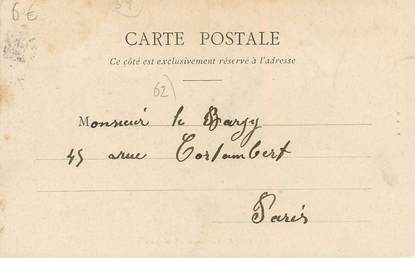 6€
59
CARTE POSTALE
Ce côté est exclusivement réservé à l'adresse
62)
Monsieur le Bargy
45 rue Cortambert
Paris